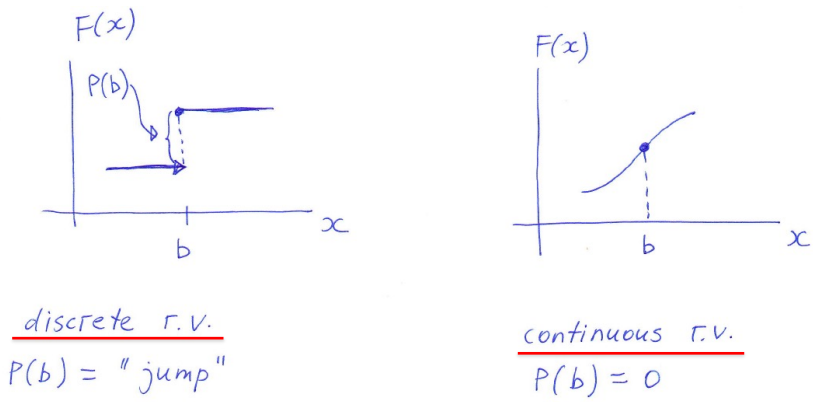 F(x)
P(b)
x
b
discrete r.v.
P(b) = "jump"
F(x)
x
b
continuous r.v.
P(b) = 0